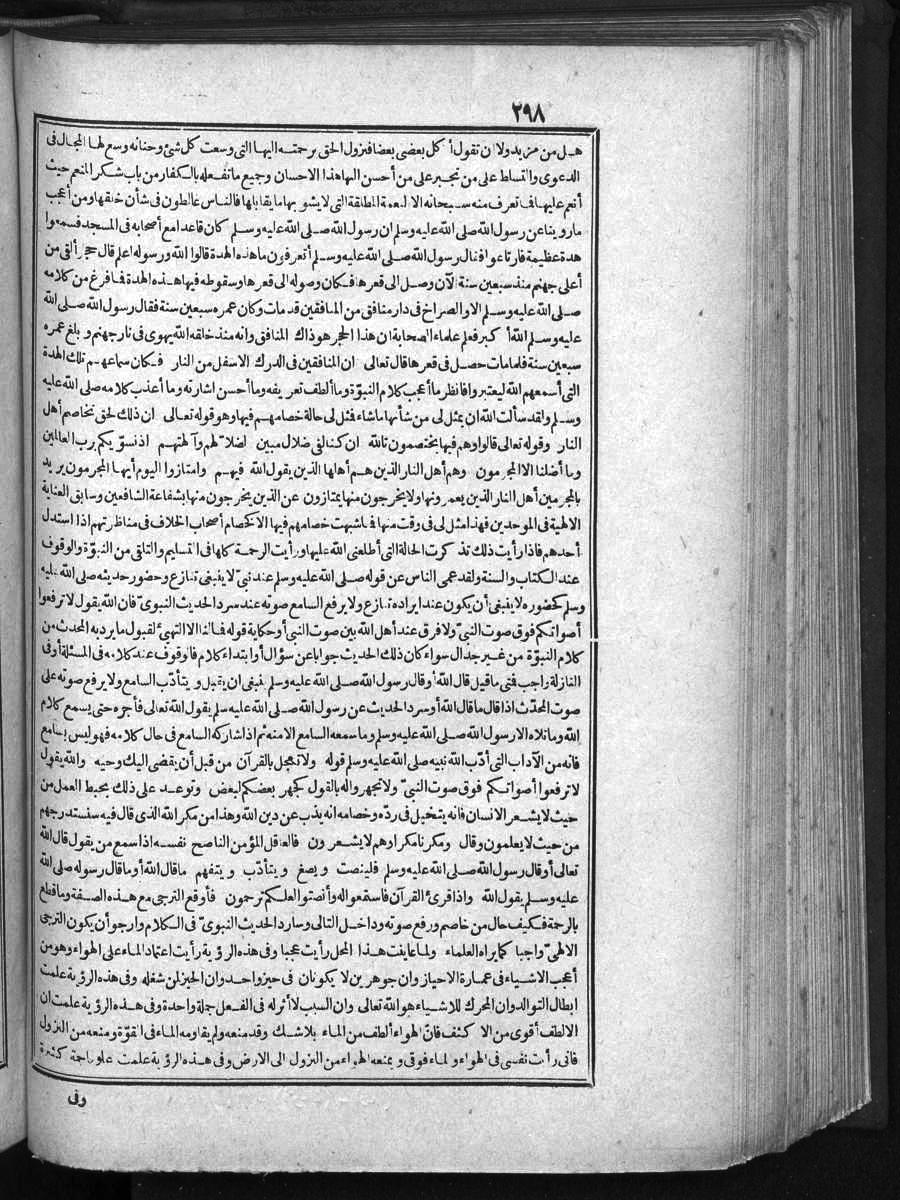 ٢٩٨
هل من مزيد ولا ان تقول أكل بعضى بعضا فنزول الحق برحمته اليها التى وسعت كل شئ وحنانه وسع لها المجال فى
الدعوى والتسلط على من تجبر على من أحسن اليها هذا الاحسان وجميع ما تفعله بالكفار من باب شكر المنعم حيث
أنعم عليها فما تعرف منه سبحانه الا النعمة المطلقة التى لا يشوبها ما يقابلها فالناس غالطون فى شأن خلقها ومن أعجب
ما روينا عن رسول الله صلى الله عليه وسلم ان رسول الله صلى الله عليه وسلم كان قاعدا مع أصحابه فى المسجد فسمعوا
هدة عظيمة فارتاعوا فقال رسول الله صلى الله عليه وسلم أتعرفون ما هذه الهدة قالوا الله ورسوله اعلم قال حجر ألقى من
أعلى جهنم منذ سبعين سنة الآن وصل الى قعرها فكان وصوله الى قعرها وسقوطه فيها هذه الهدة فما فرغ من كلامه
صلى الله عليه وسلم الا والصراخ فى دار منافق من المنافقين قد مات وكان عمره سبعين سنة فقال رسول الله صلى الله
عليه وسلم الله أكبر فعلم علماء الصحابة ان هذا الحجر هو ذاك المنافق وانه منذ خلقه الله يهوى فى نار جهنم وبلغ عمره
سبعين سنة فلما مات حصل فى قعرها قال تعالى ان المنافقين فى الدرك الاسفل من النار فكان سماعهم تلك الهدة
التى أسمعهم الله ليعتبروا فانظر ما أعجب كلام النبوّة وما ألطف تعريفه وما أحسن اشارته وما أعذب كلامه صلى الله عليه
وسلم ولقد سألت الله ان يمثل لى من شأنها ما شاء فمثل لى حالة خصامهم فيها وهو قوله تعالى ان ذلك لحق تخاصم أهل
النار وقوله تعالى قالوا وهم فيها يختصمون تالله ان كنا لفى ضلال مبين لضلالهم وآلهتهم اذ نسوّيكم برب العالمين
وما أضلنا الا المجرمون وهم أهل النار الذين هم أهلها الذين يقول الله فيهم وامتازوا اليوم أيها المجرمون يريد
بالمجرمين أهل النار الذين يعمرونها ولا يخرجون منها يمتازون عن الذين يخرجون منها بشفاعة الشافعين وسابق العناية
الالهية فى الموحدين فهذا مثل لى فى وقت منها فما شبهت خصامهم فيها الا كخصام أصحاب الخلاف فى مناظرتهم اذا استدل
أحدهم فاذا رأيت ذلك تذكرت الحالة التى أطلعنى الله عليها ورأيت الرحمة كلها فى التسليم والتلقى من النبوّة والوقوف
عند الكتاب والسنة ولقد عمى الناس عن قوله صلى الله عليه وسلم عند نبىّ لا ينبغى تنازع وحضور حديثه صلى الله عليه
وسلم كحضوره لا ينبغى أن يكون عند ايراده تنازع ولا يرفع السامع صوته عند سرد الحديث النبوىّ فان الله يقول لا ترفعوا
أصواتكم فوق صوت النبىّ ولا فرق عند أهل الله بين صوت النبى أو حكاية قوله فما لنا الا التهيئ لقبول ما يرد به المحدث من
كلام النبوّة من غير جدال سواء كان ذلك الحديث جوابا عن سؤال أو ابتداء كلام فالوقوف عند كلامه فى المسئلة أو فى
النازلة واجب فمتى ما قيل قال الله أو قال رسول الله صلى الله عليه وسلم ينبغى ان يقبل ويتأدّب السامع ولا يرفع صوته على
صوت المحدّث اذا قال ما قال الله أو سرد الحديث عن رسول الله صلى الله عليه وسلم يقول الله تعالى فأجره حتى يسمع كلام
الله وما تلاه الا رسول الله صلى الله عليه وسلم وما سمعه السامع الا منه ثم اذا شاركه السامع فى حال كلامه فهو ليس بسامع
فانه من الآداب التى أدّب الله نبيه صلى الله عليه وسلم قوله ولا تعجل بالقرآن من قبل أن يقضى اليك وحيه والله يقول
لا ترفعوا أصواتكم فوق صوت النبىّ ولا تجهروا له بالقول كجهر بعضكم لبعض وتوعد على ذلك بحبط العمل من
حيث لا يشعر الانسان فانه يتخيل فى ردّه وخصامه انه يذب عن دين الله وهذا من مكر الله الذى قال فيه سنستدرجهم
من حيث لا يعلمون وقال ومكرنا مكرا وهم لا يشعرون فالعاقل المؤمن الناصح نفسه اذا سمع من يقول قال الله
تعالى أو قال رسول الله صلى الله عليه وسلم فلينصت ويصغ ويتأدّب ويتفهم ما قال الله أو ما قال رسوله صلى الله
عليه وسلم يقول الله واذا قرئ القرآن فاستمعوا له وأنصتوا لعلكم ترحمون فأوقع الترجى مع هذه الصفة وما قطع
بالرحمة فكيف حال من خاصم ورفع صوته وداخل التالى وسارد الحديث النبوىّ فى الكلام وارجو أن يكون الترجى
الالهىّ واجبا كما يراه العلماء ولما عاينت هذا المحل رأيت عجبا وفى هذه الرؤية رأيت اعتماد الماء على الهواء وهو من
أعجب الاشياء فى عمارة الاحياز وان جوهرين لا يكونان فى حيز واحد وان الحيز لمن شغله وفى هذه الرؤية علمت
ابطال التوالد وان المحرك للاشياء هو الله تعالى وان السبب لا أثر له فى الفعل جملة واحدة وفى هذه الرؤية علمت ان
الالطف أقوى من الاكثف فانّ الهواء ألطف من الماء بلاشك وقد منعه ولم يقاومه الماء فى القوّة ومنعه من النزول
فانى رأيت نفسى فى الهواء والماء فوقى ويمنعه الهواء من النزول الى الارض وفى هذه الرؤية علمت علوما جمة كثيرة
وفى